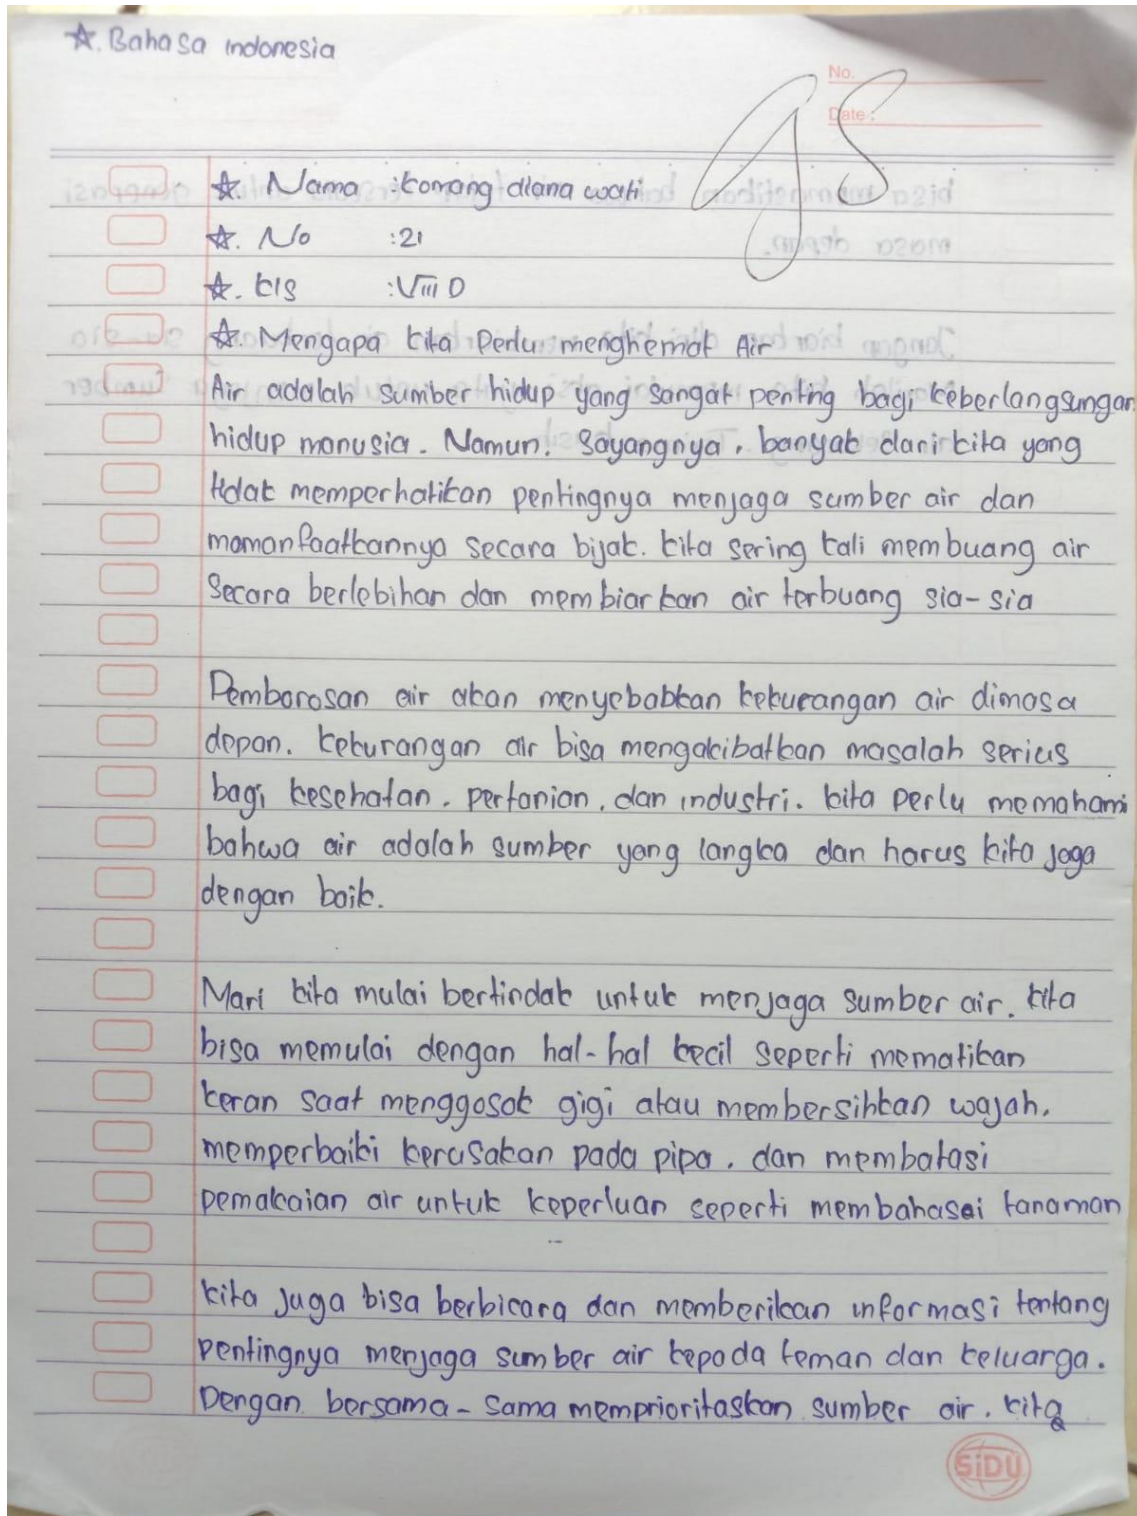 ☆. Bahasa indonesia
No.
Date :
☆. Nama : komang diana wati
☆. No : 21
☆. kls : VIII D
☆. Mengapa kita Perlu menghemat Air
Air adalah sumber hidup yang sangat penting bagi keberlangsungan
hidup manusia. Namun. Sayangnya, banyak dari kita yang
tidak memperhatikan pentingnya menjaga sumber air dan
memanfaatkannya secara bijak. kita sering kali membuang air
Secara berlebihan dan membiarkan air terbuang sia-sia
Pemborosan air akan menyebabkan kekurangan air dimasa
depan. kekurangan air bisa mengakibatkan masalah serius
bagi kesehatan. pertanian, dan industri. kita perlu memahami
bahwa air adalah sumber yang langka dan harus kita jaga
dengan baik.
Mari kita mulai bertindak untuk menjaga sumber air. kita
bisa memulai dengan hal-hal kecil seperti mematikan
keran saat menggosok gigi atau membersihkan wajah,
memperbaiki kerusakan pada pipa, dan membatasi
pemakaian air untuk keperluan seperti membahasai tanaman
kita juga bisa berbicara dan memberikan informasi tentang
pentingnya menjaga sumber air kepada teman dan keluarga.
Dengan bersama-sama memprioritaskan sumber air. kita
SiDU